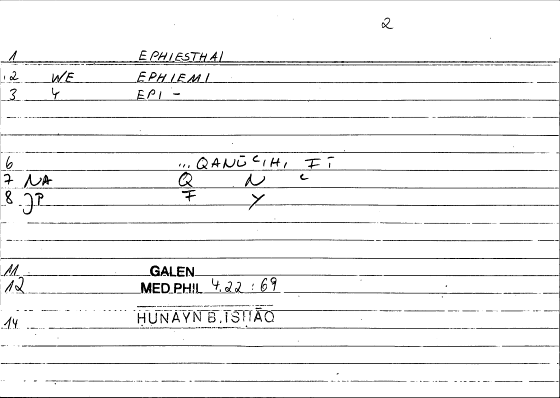 2
1 EPHIESTHAI
2 WE EPHIEMI
3 4 EPI -
6 ...QANŪʿIHI FĪ
7 NA Q N ʿ
8 JP F Y
11 GALEN
12 MED.PHIL 4.22 : 69
14 HUNAYN B.ISHĀQ